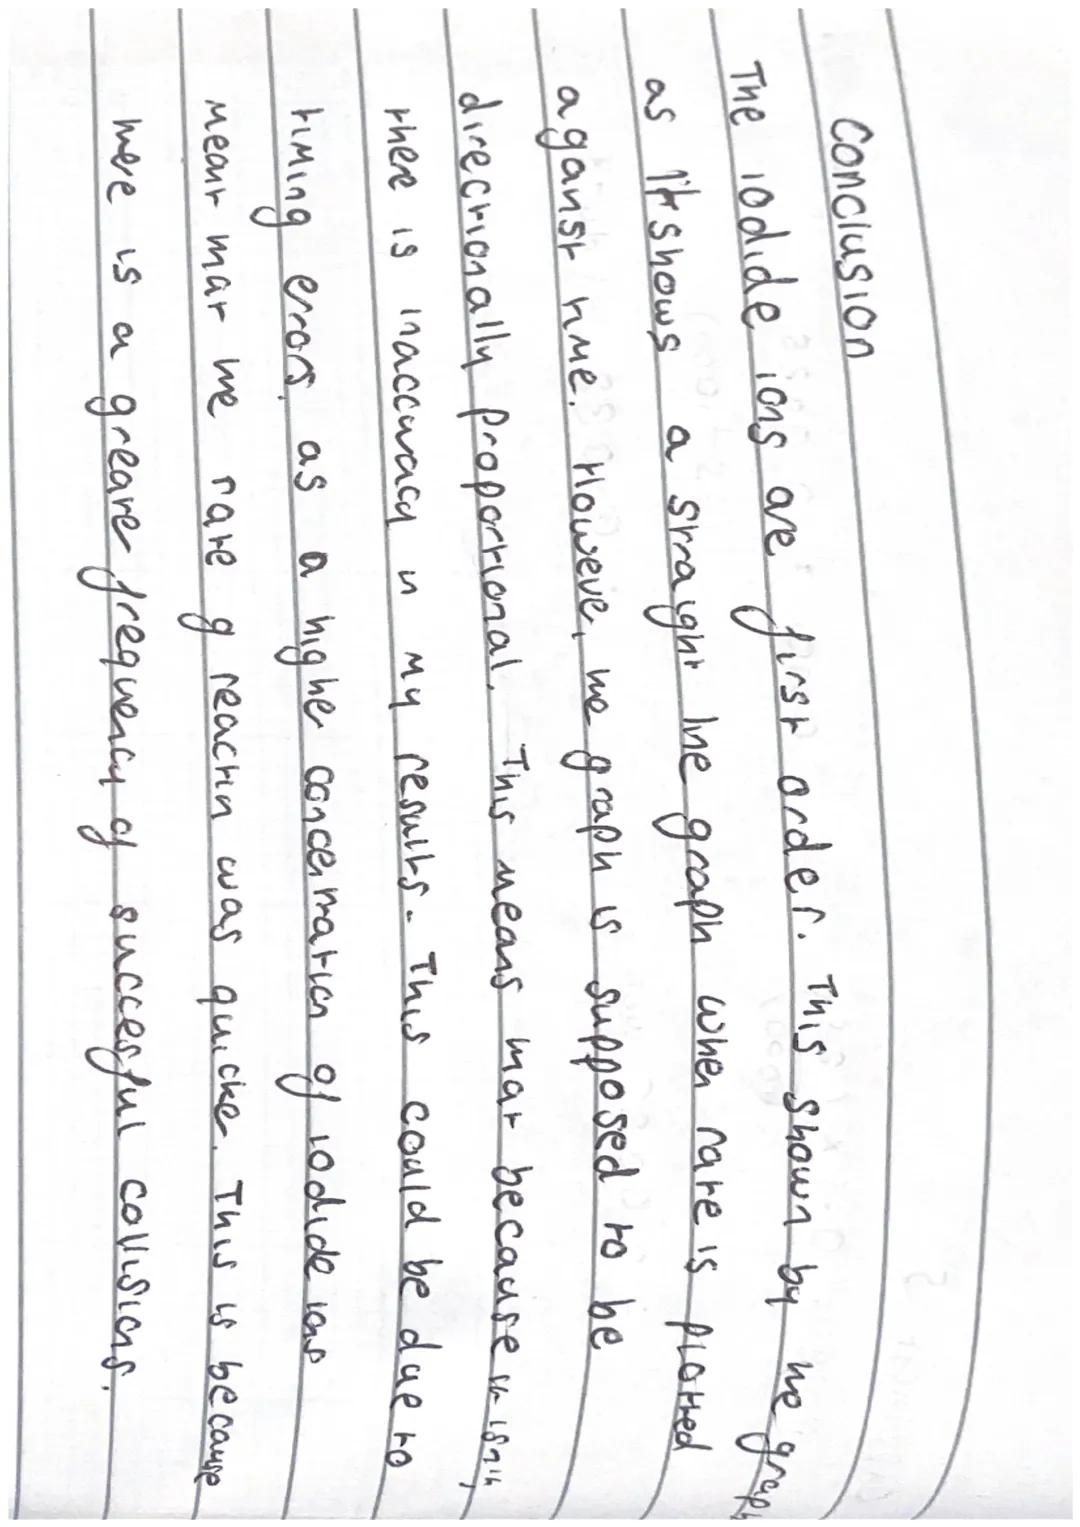 Conclusion
The iodide ions are first order. This shown by the graph
as it shows a straight line graph when rate is plotted
aganist time. However, the graph is supposed to be
directionally proportional. This means that because it isn't,
there is inaccuracy in my results. This could be due to
timing errors, as a higher concentration of iodide ions
meant that the rate of reaction was quicker. This is because
there is a greater frequency of succesful collisions.